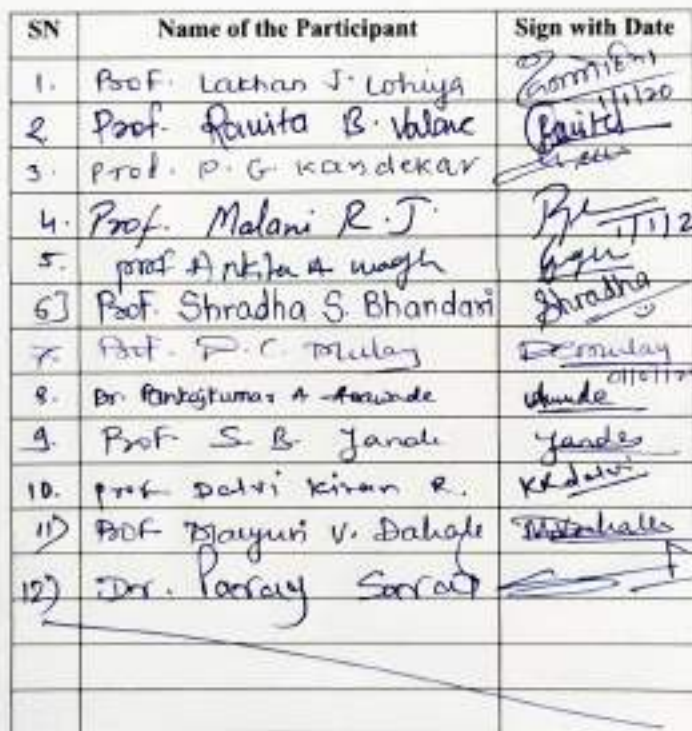 SN Name of the Participant Sign with Date
1. Prof. Lakhan J. Lohiya
1/1/20
2 Prof. Ranita B. Valane Ranita
3. Prof. P. G. Kandekar
4. Prof. Malani R. J. 1/1/2
5. prof Ankita A wagh
6] Prof. Shradha S. Bhandari Shradha
7. Prof. D. C. Mulay DCmulay
8. Dr. Pankajkumar A
9. Prof S. B. Yande Yande
10. prof Dalvi Kiran R. KRdalvi
11) Prof Mayuri V. Dahale
12) Dr. Parray